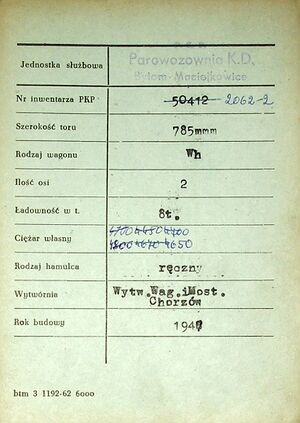 P.K.P.
Jednostka służbowa Parowozownia K.D.
Bytom-Maciejkowice
Nr inwentarza PKP 50412 2062-2
Szerokość toru 785mmm
Rodzaj wagonu Wh
Ilość osi 2
Ładowność w t. 8t.
Ciężar własny 4700 4650 4400
4800 4670 4650
Rodzaj hamulca ręczny
Wytwórnia Wytw.Wag.iMost.
Chorzów
Rok budowy 194
btm 3 1192-62 6000